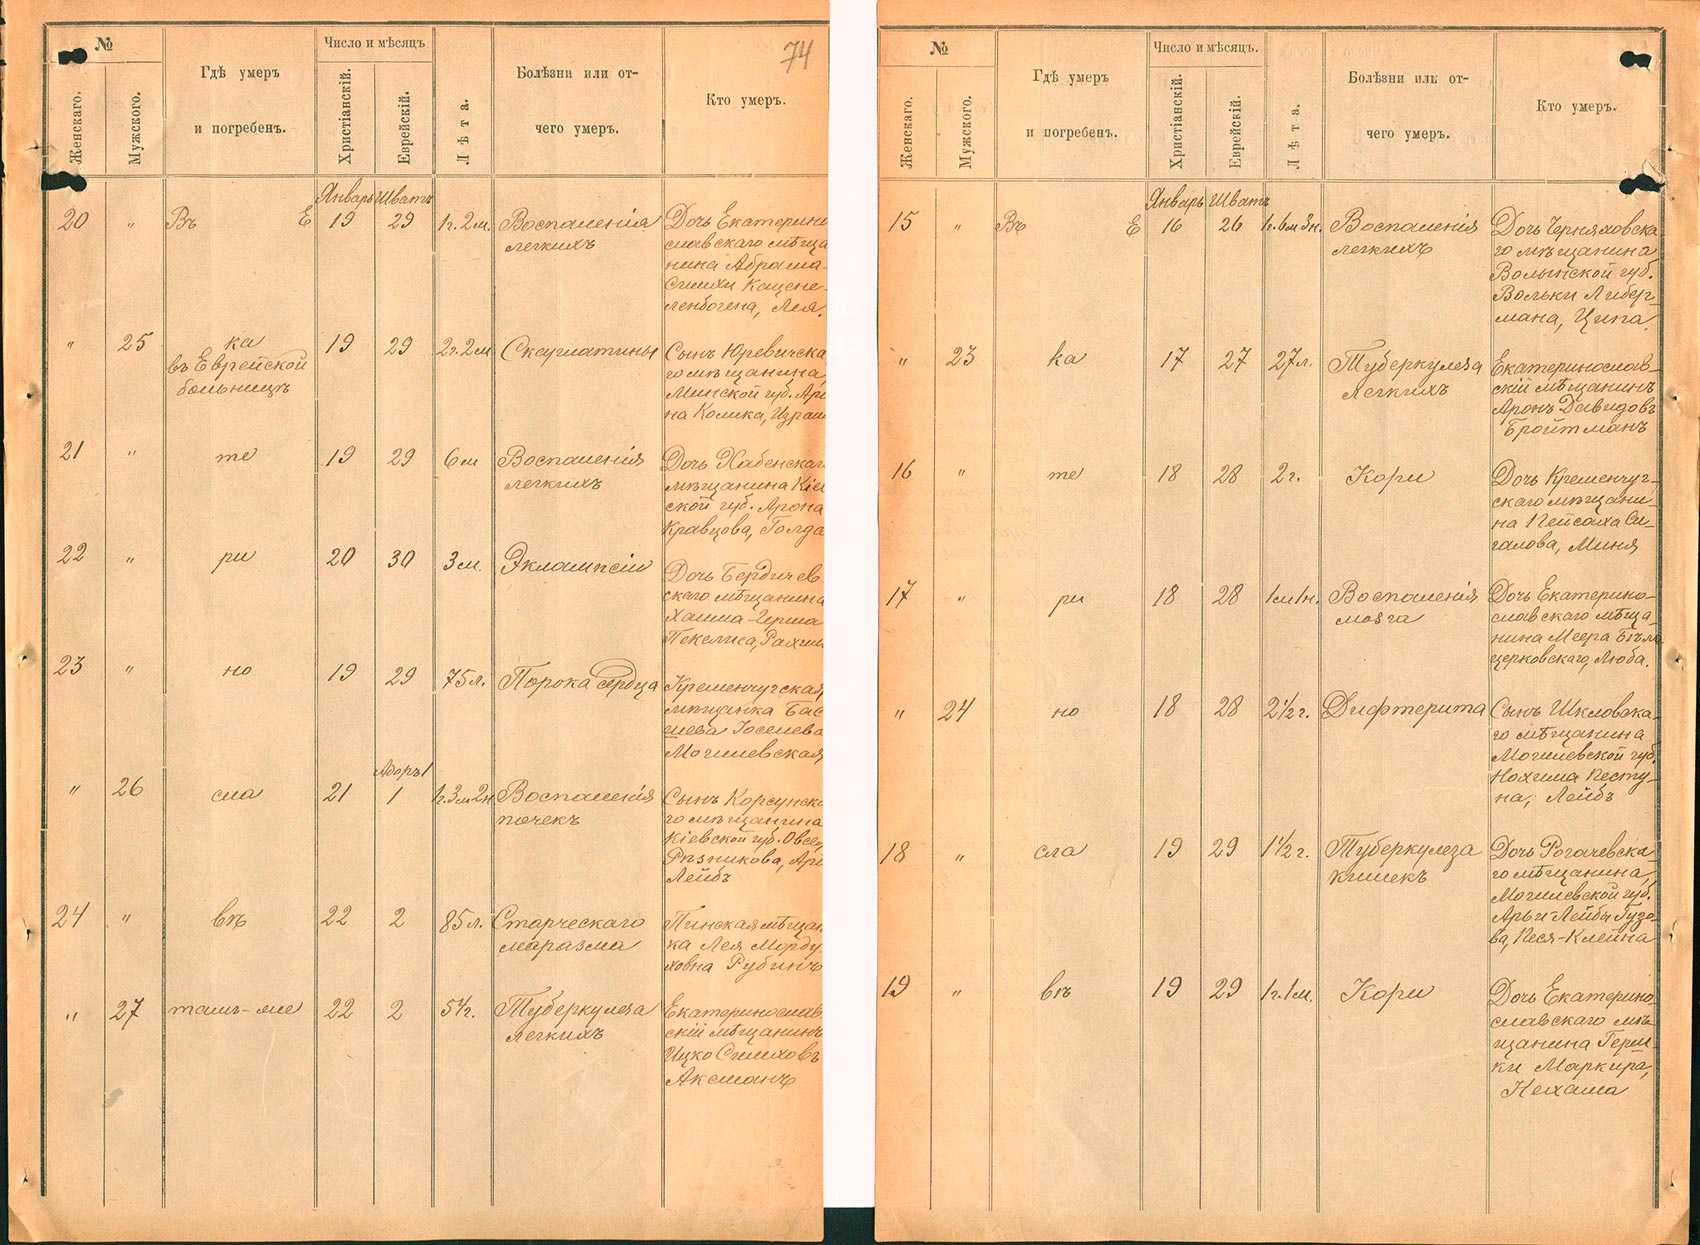 74
№
Женскаго.
Мужского.
Гдѣ умеръ
и погребенъ.
Число и мѣсяцъ
Христіанскій.
Еврейскій.
Лѣта.
Болѣзни или от-
чего умеръ.
Кто умеръ.
Январь Шватъ
20 " Въ Е 19 29 1г. 2м. Воспаленія
легкихъ
Дочь Екатерино
славскаго мѣща
нина Абрама-
Симхи Кацене-
ленбогена, Лея.
" 25 ка
въ Еврейской
больницѣ
19 29 2г. 2м Скарлатины
Сынъ Юревичска
го мѣщанина,
Минской губ.
на Колика,
21 " те 19 29 6м Воспаленія
легкихъ
Дочь Хабенскаг
мѣщанина Кіев
ской губ. Арона
Кравцова, Голда
22 " ри 20 30 3м. Эклампсіи
Дочь Бердичев
скаго мѣщанина
Хаима-Герша
Пекелиса,
23 " но 19 29 75л. Порока сердца
Кременчугская
мѣщанка Бас
шева Іоселева
Могилевская
Адоръ 1
" 26 сла 21 1 1г. 3м 2н Воспаленія
почекъ
Сынъ Корсунска
го мѣщанина
Кіевской губ. Овсея
Рѣзникова,
Лейбъ
24 " въ 22 2 85л. Старческаго
маразма
Пинская мѣщан
ка Лея Морду
ховна Рубинъ
" 27 тамъ-же 22 2 5½г. Туберкулеза
легкихъ
Екатеринослав
скій мѣщанинъ
Ицко Симховъ
Аксманъ
№
Женскаго.
Мужского.
Гдѣ умеръ
и погребенъ.
Число и мѣсяцъ.
Христіанскій.
Еврейскій.
Лѣта.
Болѣзни или от-
чего умеръ.
Кто умеръ.
Январь Шватъ
15 " Въ Е 16 26 1г. 6м 3н. Воспаленія
легкихъ
Дочь Черняховска
го мѣщанина
Волынской губ.
Вольки Либер-
мана, Ципа.
" 23 ка 17 27 27л. Туберкулеза
легкихъ
Екатеринослав-
скій мѣщанинъ
Аронъ Давидовъ
Бройтманъ
16 " те 18 28 2г. Кори
Дочь Кременчуг-
скаго мѣщани-
на Пейсаха Си-
галова, Миня
17 " ри 18 28 1м 1н. Воспаленія
мозга
Дочь Екатерино-
славскаго мѣща-
нина Меера Бѣла
церковскаго, Люба.
" 24 но 18 28 2½г. Дифтерита
Сынъ Шкловска-
го мѣщанина
Могилевской губ.
Нохима Песту-
на, Лейбъ
18 " сла 19 29 1½г. Туберкулеза
кишекъ
Дочь Рогачевска-
го мѣщанина,
Могилевской губ.
Арьи-Лейбы Гузо-
ва, Песя-Клейна
19 " въ 19 29 1г. 1м. Кори
Дочь Екатерино
славскаго мѣ-
щанина Герш-
ки Маркира,
Нехама